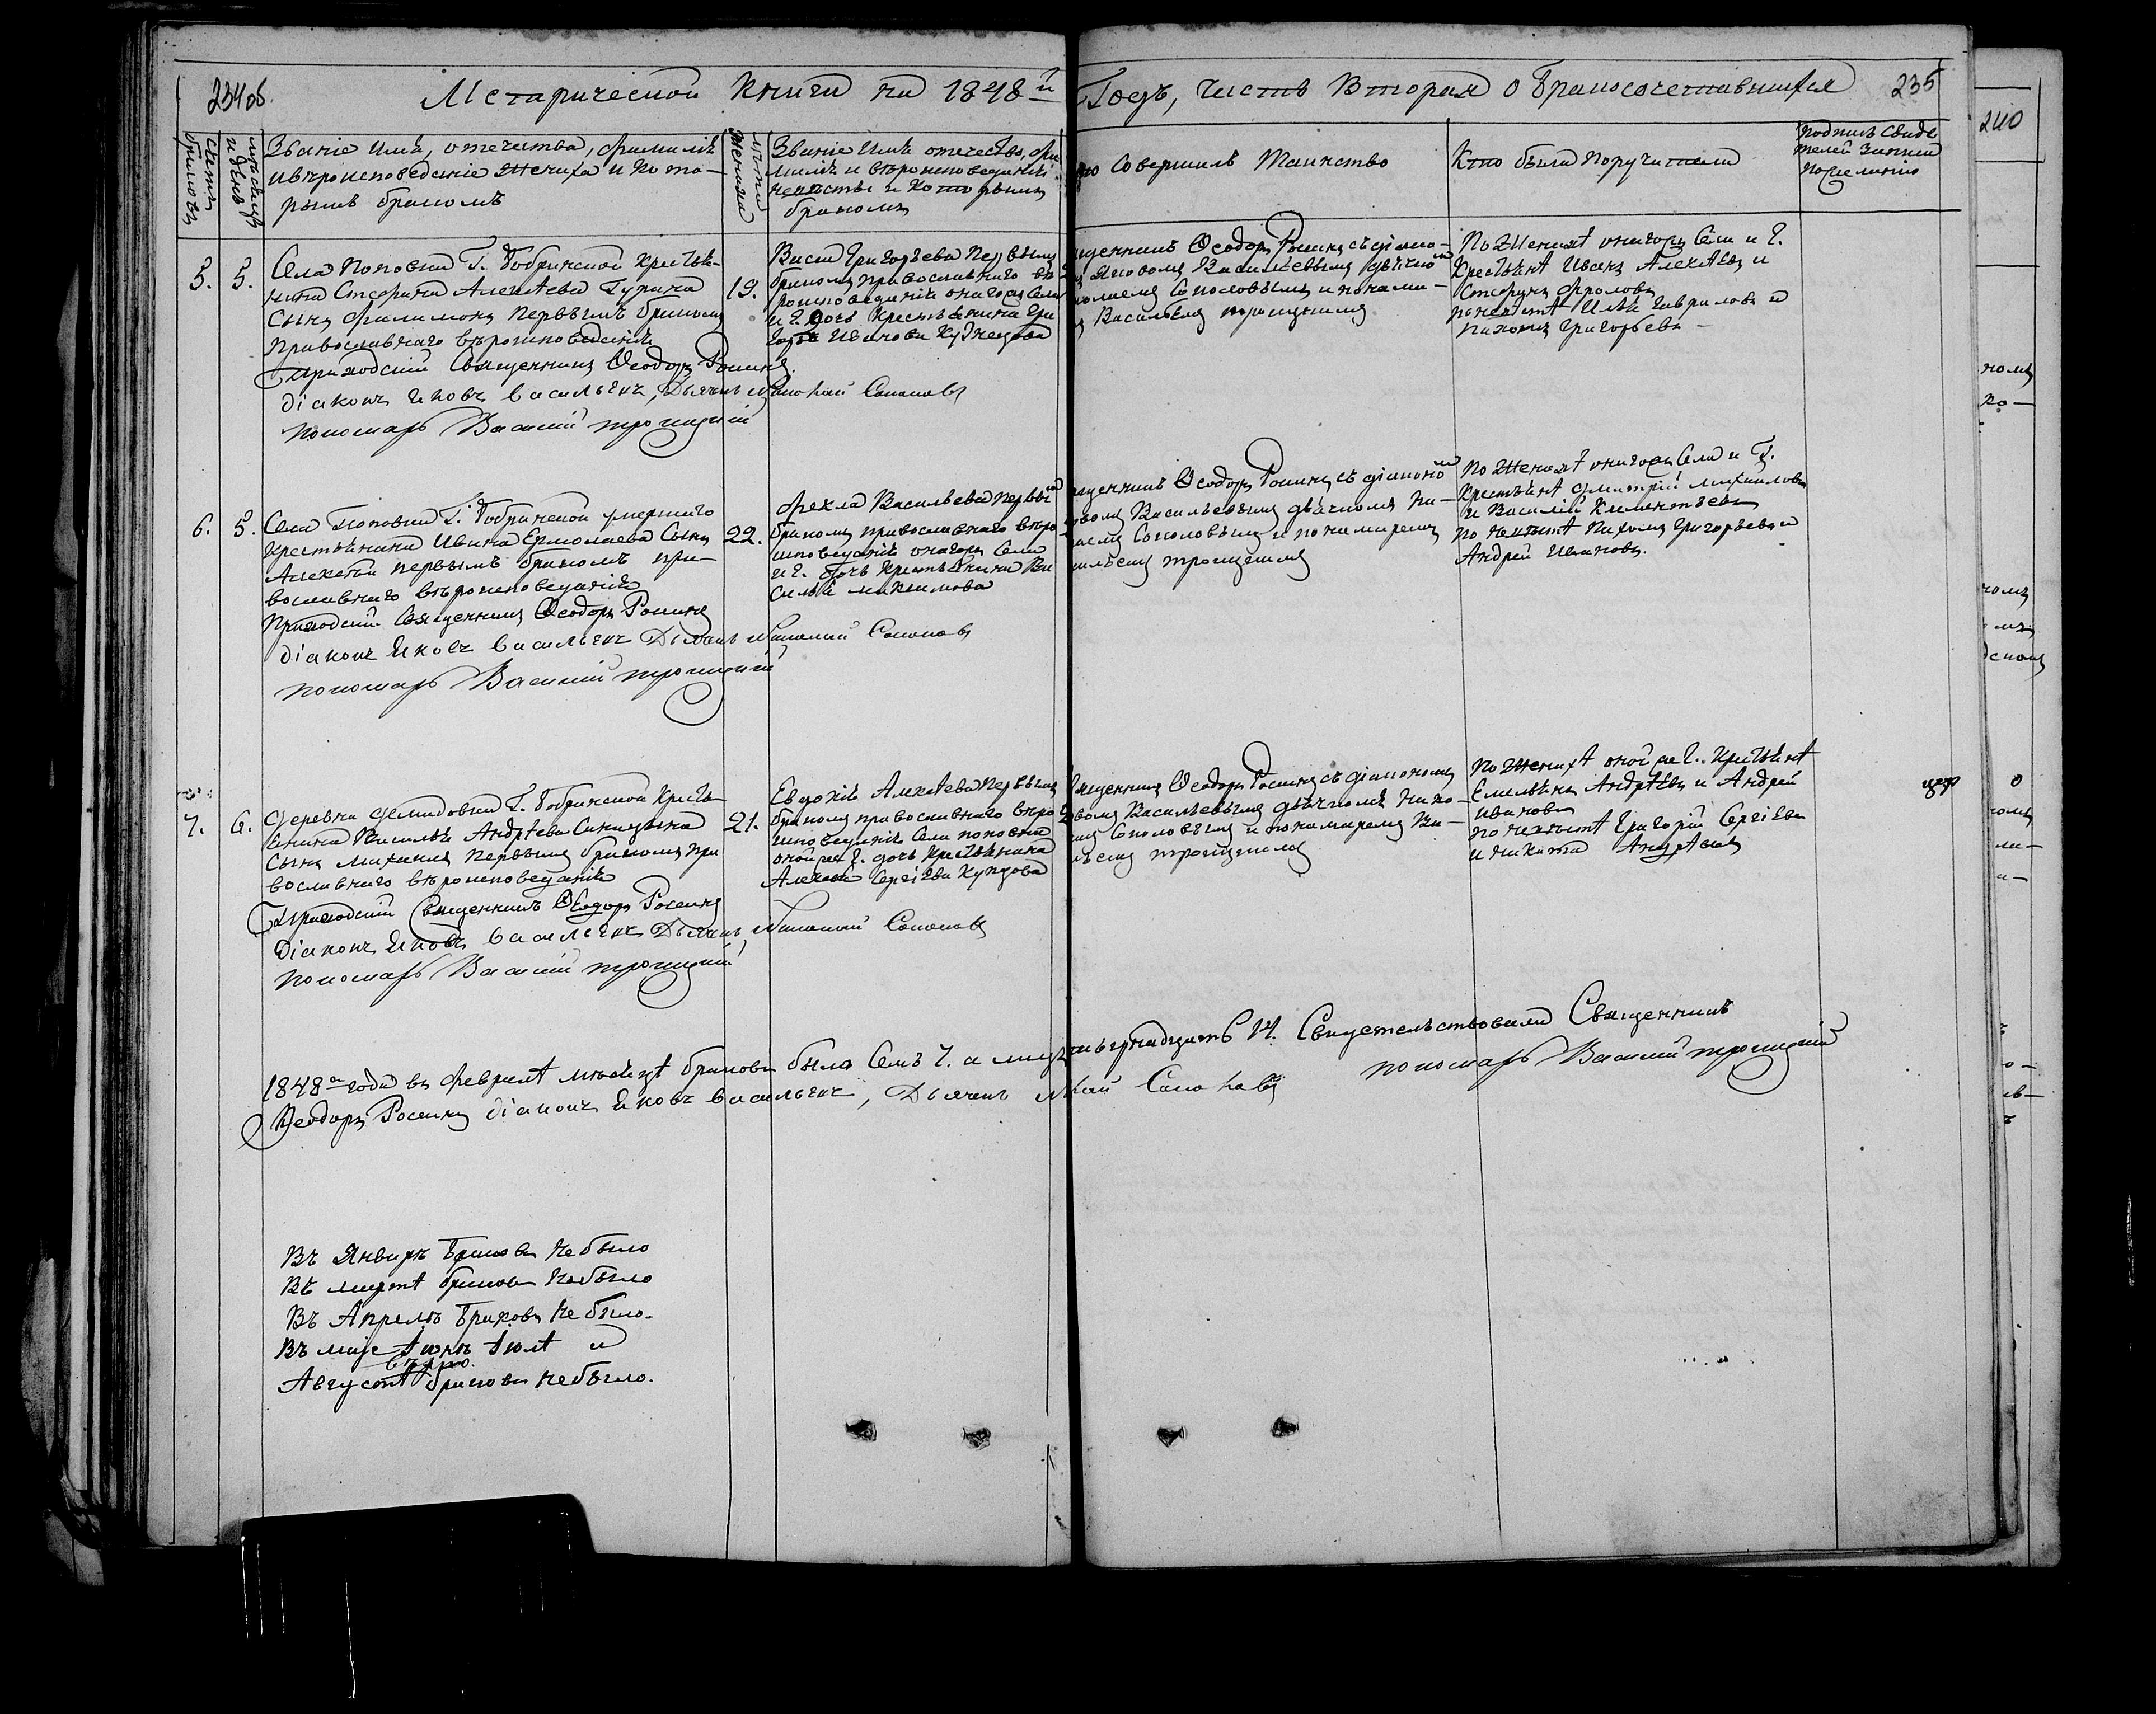 234 об.
Метарической Книги на 1848й
Годъ, Часть Вторая о Бракосочетавшихся
235
240
Счетъ
браковъ
мѣсяцъ
и день
Званіе Имя, отечества, фамилія
и вѣроисповеданіе Жениха и Кото-
рымъ бракомъ
лѣта
Жениха
Званіе Имя отечество, фа
милія и вѣроисповеданія
невѣсты и Которымъ
бракомъ
то Совершилъ Таинство
Кто были Поручители
подпись Свиде
телей Записи
по Желанію
5.
5.
Села Поповки Г. Бобринской Кресть-
янина Спефана Алекѣева Гурина
Сынъ Филимонъ Первымъ бракомъ
Православнаго вѣроисповеданія
Приходскій Священникъ Ѳеодоръ Росинъ
діаконъ Яковъ Васильевъ, Дьячекъ Николай Соколовъ
пономарь Василій троицкій
19.
Васа Григорьева Первымъ
бракомъ православнаго вѣ
роисповеданія онагожъ Села
и Г. дочь Крестьянина Гри
горія Иванова Кузнецова
щенникъ Ѳеодоръ Росинъ съ діако-
Яковомъ Васильевымъ дьячко
колаемъ Соколовымъ и понама-
Васильемъ троицкимъ
По Женихѣ онагожъ Села и Г.
Крестьянѣ Иванъ Алекѣевъ и
Спефанъ Фроловъ
по невѣстѣ Илья Гавриловъ и
Пахомъ Григорьевъ -
6.
5.
Села Поповки Г. Бобринской умершаго
Крестьянина Ивана Ермолаева Сынъ
Алекѣй первымъ бракомъ пра-
вославнаго вѣроисповеданія
Приходскій Священникъ Ѳеодоръ Росинъ
діаконъ Яковъ Васильевъ Дьячекъ Николай Соколовъ
пономарь Василій троицкій
22.
Фекла Васильева первы
бракомъ православнаго вѣро
исповеданія онагожъ Села
и Г. дочь Крестьянина Ва
силья Максимова
щенникъ Ѳеодоръ Росинъ съ діаконо
ковомъ Васильевымъ дьячкомъ Ни-
лаемъ Соколовымъ и понамаремъ
ильемъ троицкимъ
По Женихѣ онагожъ Села и Г.
Крестьянѣ Дмитрій Михайловъ
и Василій Климентьевъ
по невѣстѣ Пахомъ Григорьевъ и
Андрей Ивановъ.
7.
6.
Деревни Демидовки Г. Бобринской Кресть
янина Василья Андрѣева Синицына
Сынъ Михаилъ Первымъ бракомъ пра
вославнаго вѣроисповеданія
Приходскій Священникъ Ѳеодоръ Росинъ
Діаконъ Яковъ Васильевъ Дьячекъ Николай Соколовъ
Пономарь Василій троицкій
21.
Евдокія Алекѣева Первымъ
бракомъ православнаго вѣро
исповеданія Села поповки
онойже Г. дочь Крестьянина
Алекѣя Сергіева Купцова
щенникъ Ѳеодоръ Росинъ съ діакономъ
ковомъ Васильевымъ дьячкомъ Нико-
емъ Соколовымъ и понамаремъ Ва-
льемъ троицкимъ
По Женихѣ онойже Г. Крестьянѣ
Емельянъ Андрѣевъ и Андрей
Ивановъ
по невѣстѣ Григорій Сергіевъ
и Никита Андрѣевъ
1848го года въ Февралѣ мѣсяцѣ браковъ было Семь 7. а лицъ четырнадцать 14. Свидетельствовали Священникъ
Ѳеодоръ Росинъ діаконъ Яковъ Васильевъ, Дьячекъ Николай Соколовъ пономарь Василій троицкій
Въ Январѣ Браковъ Небыло
Въ мартѣ браковъ Небыло
Въ Апрелѣ Браковъ Небыло.
Въ маѣ Іюнѣ Іюлѣ и
Августѣ браковъ Небыло.